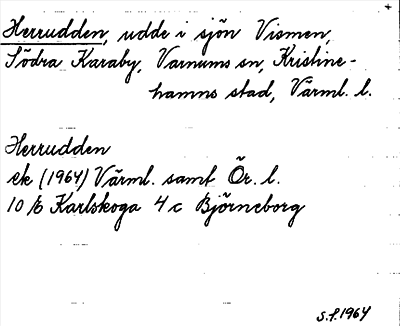 Herrudden, udde i sjön Vismen,
Södra Karaby, Varnums sn, Kristine-
hamns stad, Värml. l.
Herrudden
ek (1964) Värml. samt Ör. l.
10 E Karlskoga 4 c Björneborg
S.F. 1964